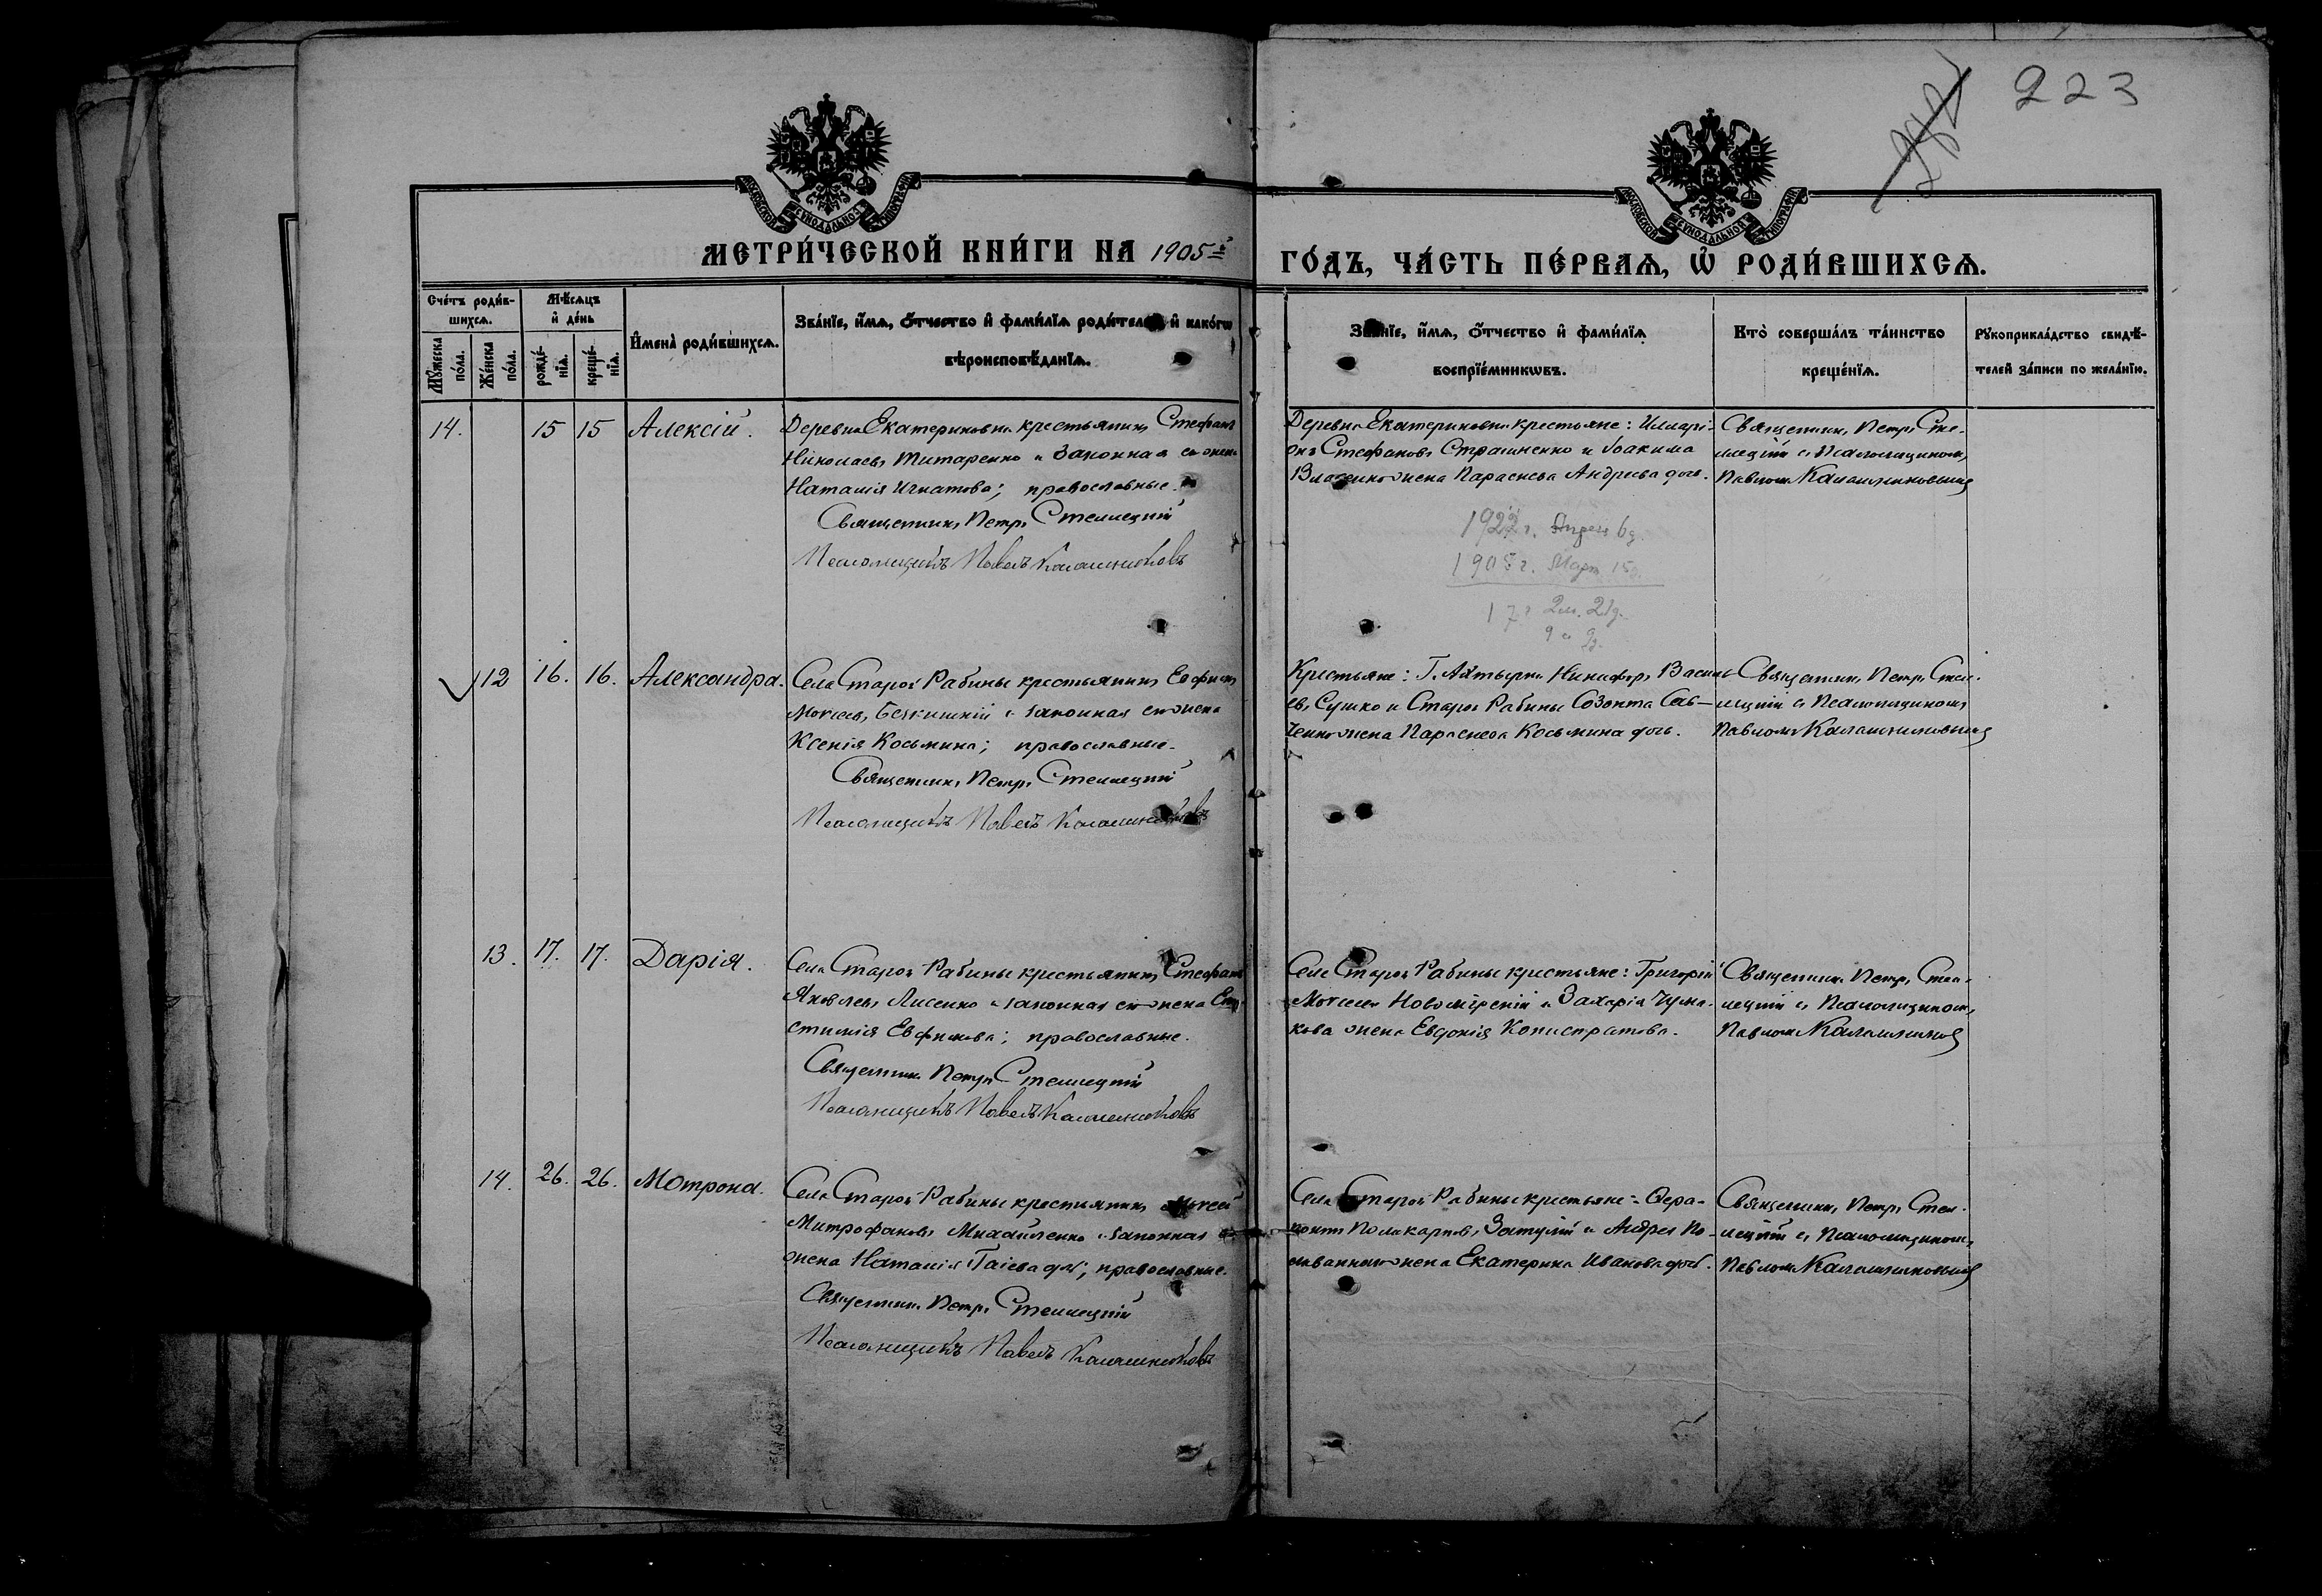 223
МОСКОВСКОЙ СѴНОДАЛЬНОЙ ТИПОГРАФІИ
МОСКОВСКОЙ СѴНОДАЛЬНОЙ ТИПОГРАФІИ
МЕТРИ́ЧЕСКОЙ КНИ́ГИ НА 1905й
ГО́ДЪ, ЧА́СТЬ ПЕ́РВАѦ, Ѡ РОДИ́ВШИХСѦ.
Сче́тъ роди́в-
шихсѧ.
Мꙋ́жеска по́ла.
Же́нска по́ла.
Мѣ́сѧцъ
и҆ де́нь
рожде́-
нїѧ.
креще́-
нїѧ.
И҆мена̀ роди́вшихсѧ.
Зва́нїе, и҆́мѧ, ѻ҆́тчество и҆ фами́лїѧ роди́телей и҆ како́гѡ
вѣроисповѣ́данїѧ.
Зва́нїе, и҆́мѧ, ѻ҆́тчество и҆ фами́лїѧ
воспрїе́мникѡвъ.
Кто̀ соверша́лъ та́инство
креще́нїѧ.
Рꙋкоприкла́дство свидѣ́-
телей за́писи по жела́нїю.
14. 15 15 Алексій.
Деревни Екатериновки крестьянинъ Стефанъ
Николаевъ Титаренко и законная его жена
Наталія Игнатова; православные.
Священникъ Петръ Стеллецкій
Псаломщикъ Павелъ Калашниковъ
Деревни Екатериновки крестьяне: Иларі-
онъ Стефановъ Страшненко и Іоакима
Власенко жена Параскева Андреева дочь.
Священникъ Петръ Стел-
лецкій съ Псаломщикомъ
Павломъ Калашниковымъ
1922 г. Апрель 6 д.
1905 г. Март 15
17 г 2 м. 21 д.
12 16. 16. Александра.
Села Старой Рабины крестьянинъ Евфимъ
Моисеевъ и законная его жена
Ксенія Косьмина; православные.
Священникъ Петръ Стеллецкій
Псаломщикъ Павелъ Калашниковъ
Крестьяне: Г. Ахтырки Никифоръ Василь-
евъ Сушко и Старой Рабины Созонта Сав-
ченко жена Параскева Косьмина дочь.
Священникъ Петръ Стел-
лецкій съ Псаломщикомъ
Павломъ Калашниковымъ
13. 17. 17. Дарія.
Села Старой Рабины крестьянинъ Стефанъ
Яковлевъ Лисенко и законная его жена Ев-
стимія Евфимова; православные.
Священникъ Петръ Стеллецкій
Псаломщикъ Павелъ Калашниковъ
Села Старой Рабины крестьяне: Григорій
Моисеевъ Новомірскій и Захарія Чума-
кова жена Евдокія Капистратова.
Священникъ Петръ Стел-
лецкій съ Псаломщикомъ
Павломъ Калашниковъ
14. 26. 26. Мотрона.
Села Старой Рабины крестьянинъ Моисей
Митрофановъ Михайленко и законная его
жена Наталія Гаіева дочь; православные.
Священникъ Петръ Стеллецкій
Псаломщикъ Павелъ Калашниковъ
Села Старой Рабины крестьяне: Ѳера-
понтъ Поликарповъ Затулій и Андрея По-
ливанного жена Екатерина Иванова дочь.
Священникъ Петръ Стел-
лецкій съ Псаломщикомъ
Павломъ Калашниковымъ